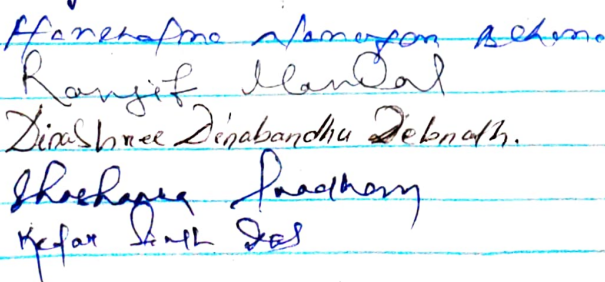 Narayan Behera
Ranjit Mandal
Dinashree Dinabandhu Debnath.
Shashanka Pradhan
Kedar Nath Das